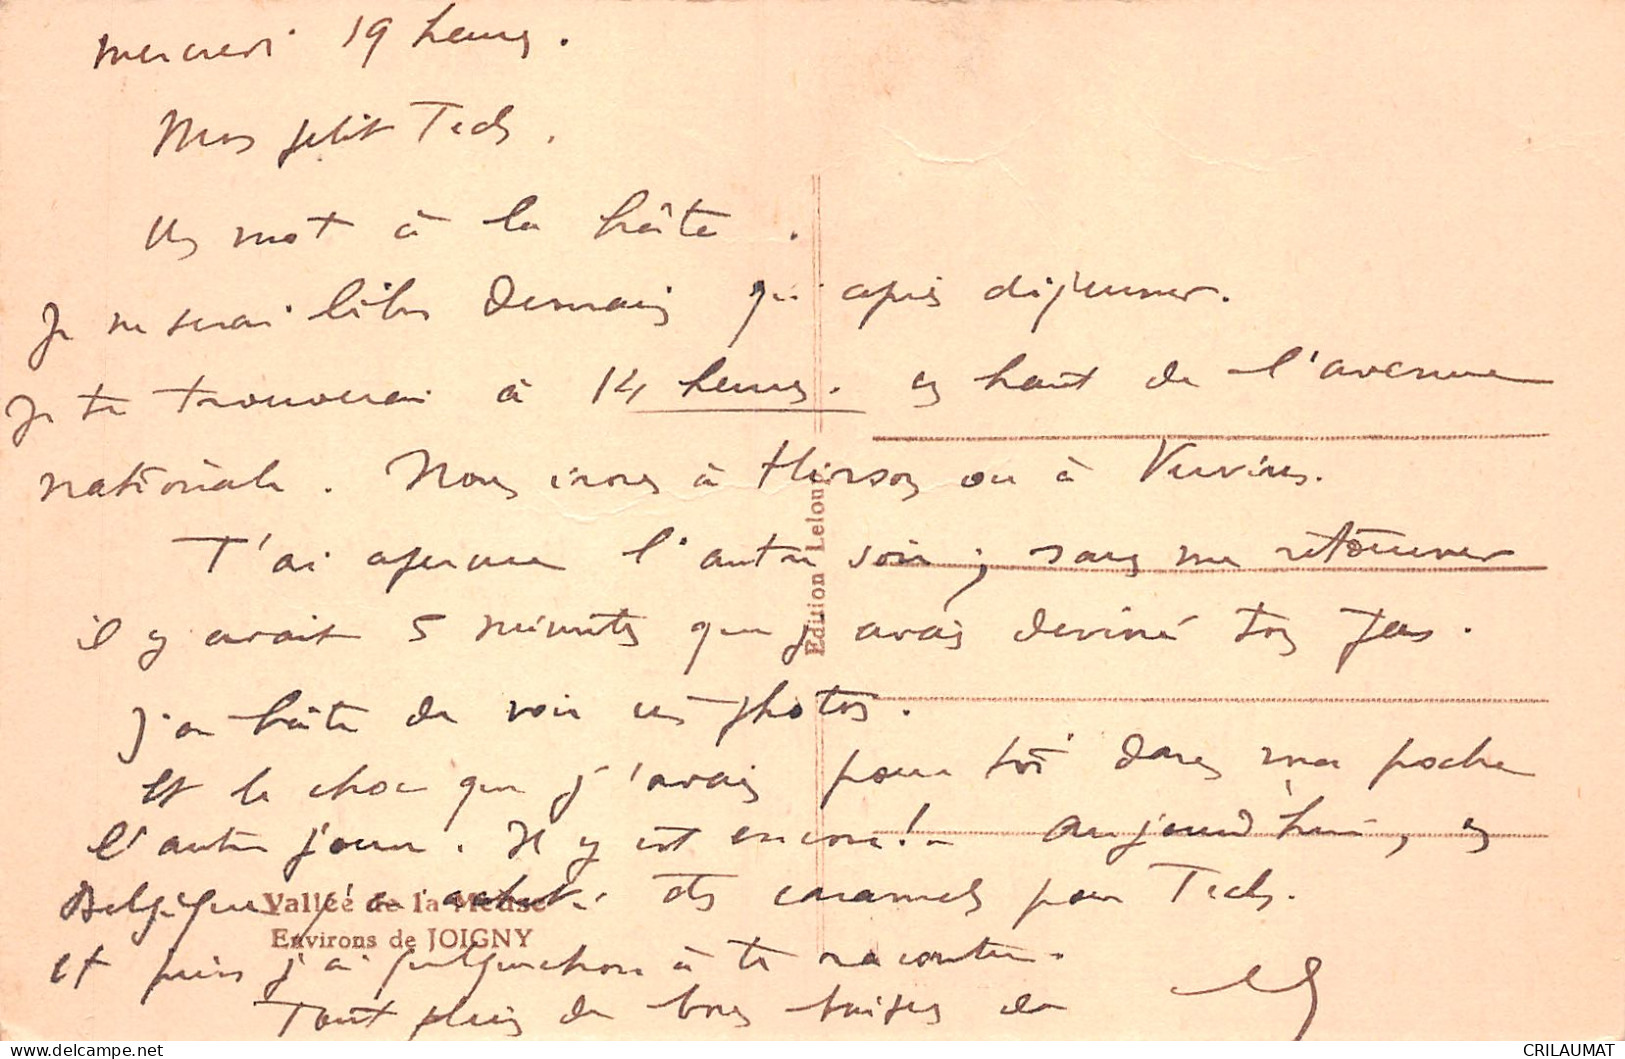 Mercredi 19 heures.
Mon petit Teds.
Un mot à la hâte.
Je ne serai libre demain qu'après déjeuner.
Je te trouverai à 14 heures. en haut de l'avenue
nationale. Nous irons à Hirson ou à Vervins.
T'ai aperçue l'autre soir; sans me retourner
il y avait 5 minutes que j'avais deviné ton pas.
J'ai hâte de voir ces photos.
Et le choc que j'avais pour toi dans ma poche
l'autre jour. Il y est encore! Aujourd'hui, en
Belgique j'ai acheté des caramels pour Teds.
Et puis j'ai quelque chose à te raconter.
Tout plein de bons baisers de
Edition Leloup
Vallée de la Meuse
Environs de JOIGNY
CRILAUMAT